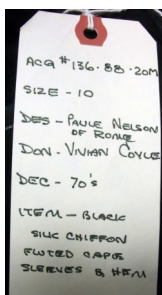 ACQ #136.88.20M
SIZE - 10
DES - PAULE NELSON
OF ROME
DON - VIVIAN COYLE
DEC - 70's
ITEM - BLACK
SILK CHIFFON
FLUTED CAPE
SLEEVES & HEM